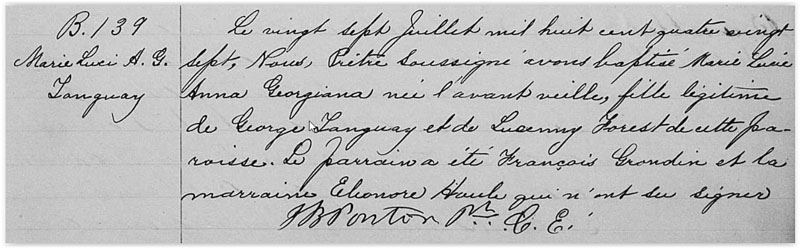 B. 139
Marie Luci A. G.
Tanguay
Le vingt sept Juillet mil huit cent quatre vingt
sept, Nous, Prêtre Soussigné avons baptisé Marie Lucie
Anna Georgiana née l'avant veille, fille légitime
de George Tanguay et de Lucenny Forest de cette pa-
roisse. Le parrain a été François Grondin et la
marraine Eléonore Houle qui n'ont su signer
JB Ponton Ptr. C. E.